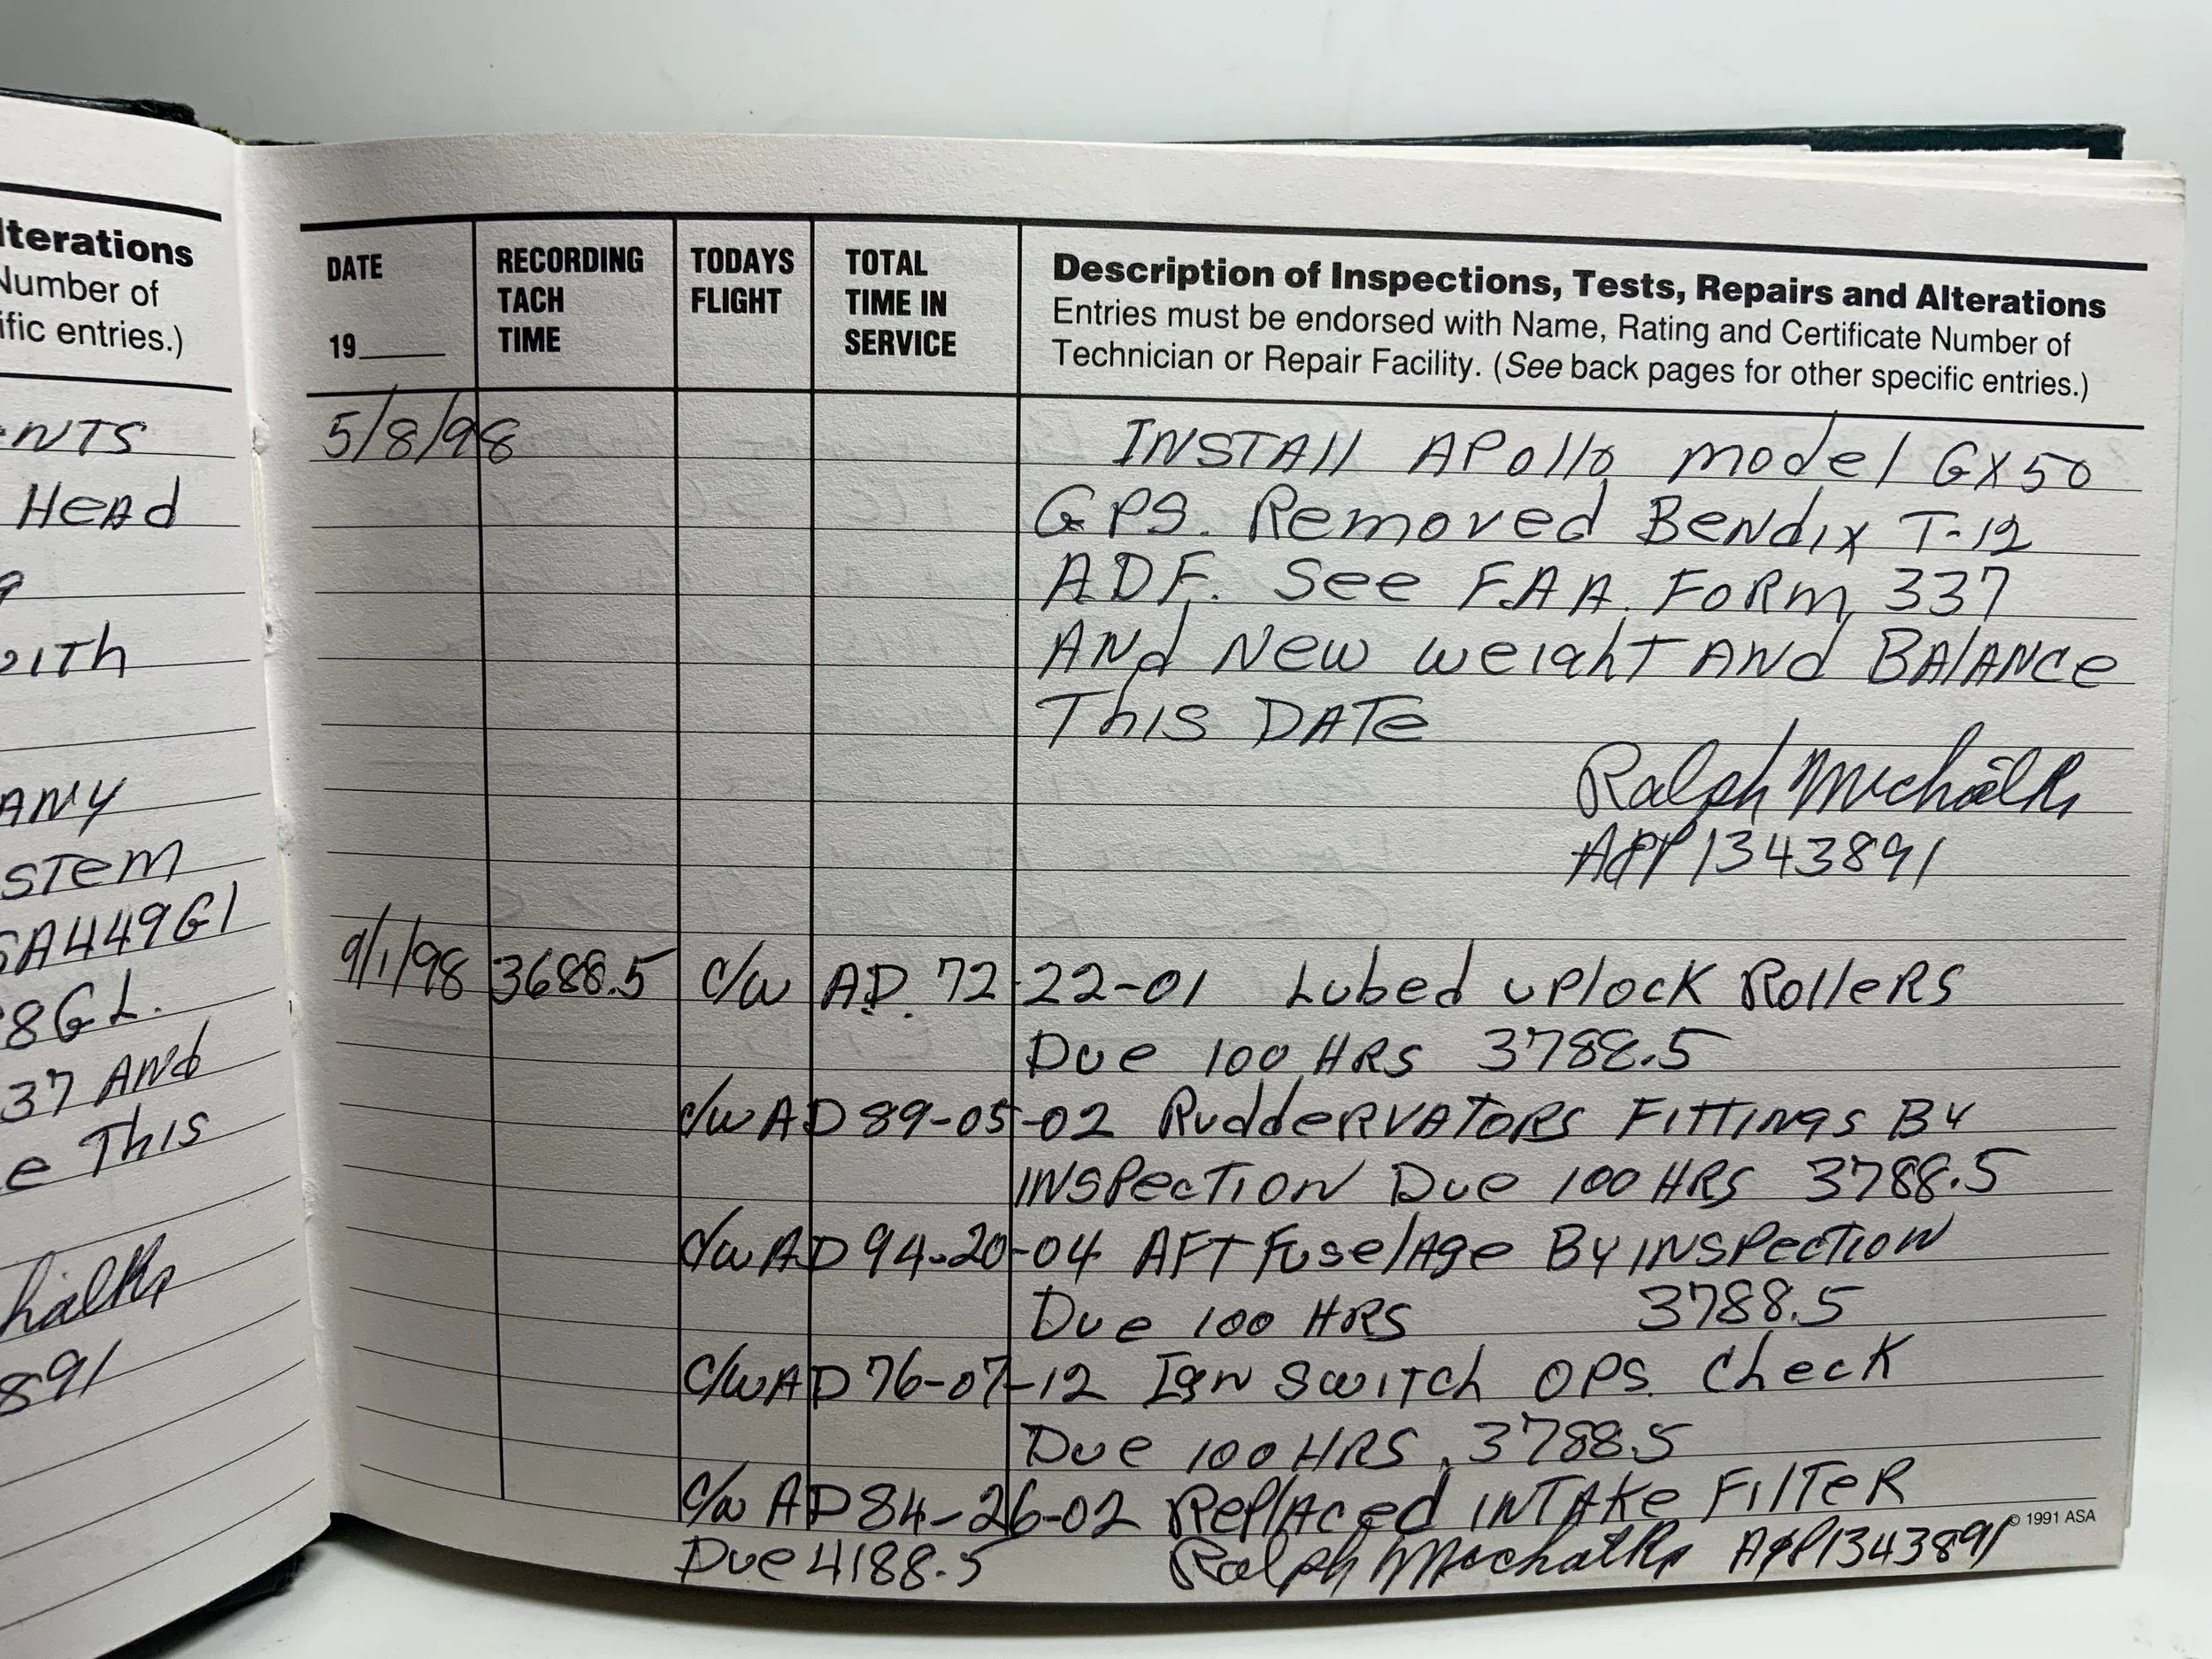 lterations
Number of
ific entries.)
NTS
Head
ITh
ANY
STEM
SA449GL
8GL.
37 And
e This
halks
891
DATE
19
RECORDING
TACH
TIME
TODAYS
FLIGHT
TOTAL
TIME IN
SERVICE
Description of Inspections, Tests, Repairs and Alterations
Entries must be endorsed with Name, Rating and Certificate Number of
Technician or Repair Facility. (See back pages for other specific entries.)
5/8/98 INSTAll APollo model GX50
GPS. Removed BendIx T-12
ADF. See F.A.A. FoRm 337
ANd New weight ANd BAlANce
ThIS DATe
Ralph Michalks
A&P 1343891
9/1/98 3688.5 c/w AD. 72-22-01 Lubed uplock RolleRS
Due 100 HRS 3788.5
c/w AD 89-05-02 RuddeRVAToRS FITTINgS By
INSPecTION Due 100 HRS 3788.5
c/w AD 94-20-04 AFT FuselAge By INSPecTION
Due 100 HRS 3788.5
c/w AD 76-07-12 Ign SwITch OPS. Check
Due 100 HRS. 3788.5
c/w AD 84-26-02 ReplAced INTAke FIlTeR
© 1991 ASA
Due 4188.5 Ralph Michalks A&P1343891